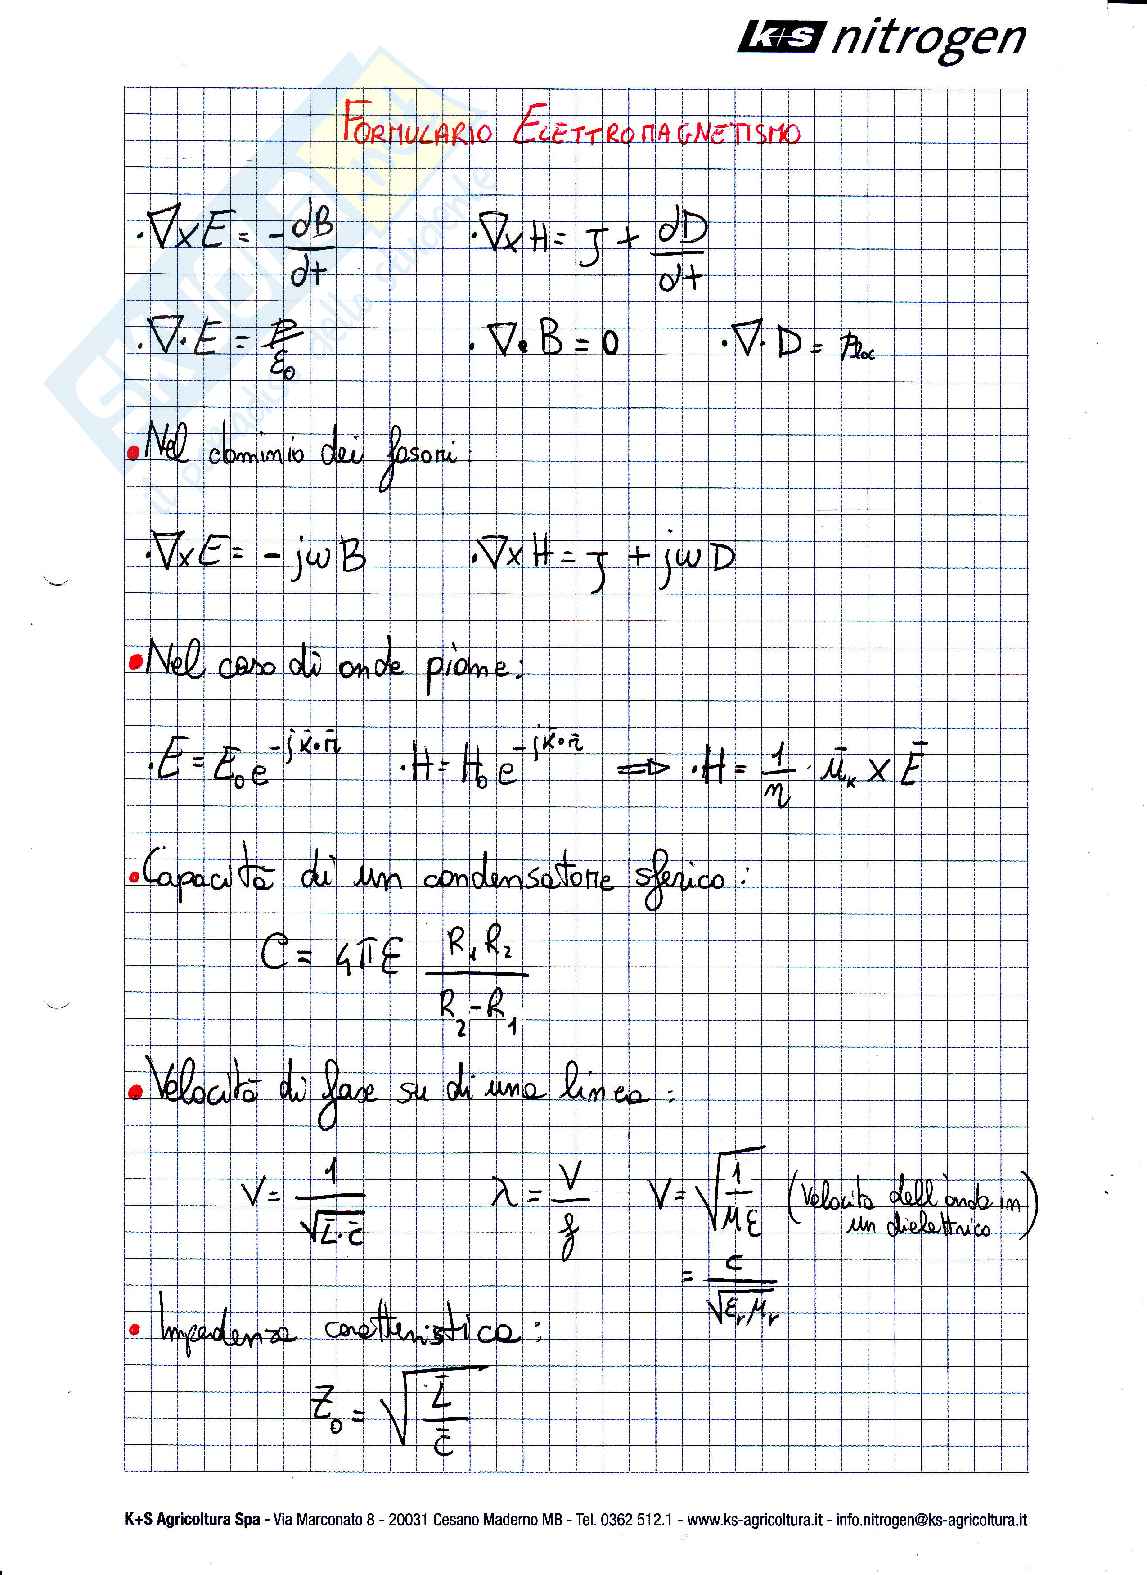 K+S nitrogen
FORMULARIO ELETTROMAGNETISMO
·∇×E = -dB/dt ·∇×H = J + dD/dt
·∇·E = ρ/ε₀ ·∇·B = 0 ·∇·D = ρ
• Nel dominio dei fasori:
·∇×E = -jωB ·∇×H = J + jωD
• Nel caso di onde piane:
·E = E₀e^{-jk̄·r̄} ·H = H₀e^{-jk̄·r̄} ⇒ ·H = 1/η · ūₖ × Ē
• Capacità di un condensatore sferico:
C = 4πε R₁R₂/(R₂-R₁)
• Velocità di fase su di una linea:
V = 1/√(L̄·C̄) λ = V/f V = √(1/με) (Velocità dell'onda in un dielettrico)
= c/√(εᵣμᵣ)
• Impedenza caratteristica:
Z₀ = √(L̄/C̄)
K+S Agricoltura Spa - Via Marconato 8 - 20031 Cesano Maderno MB - Tel. 0362 512.1 - www.ks-agricoltura.it - info.nitrogen@ks-agricoltura.it